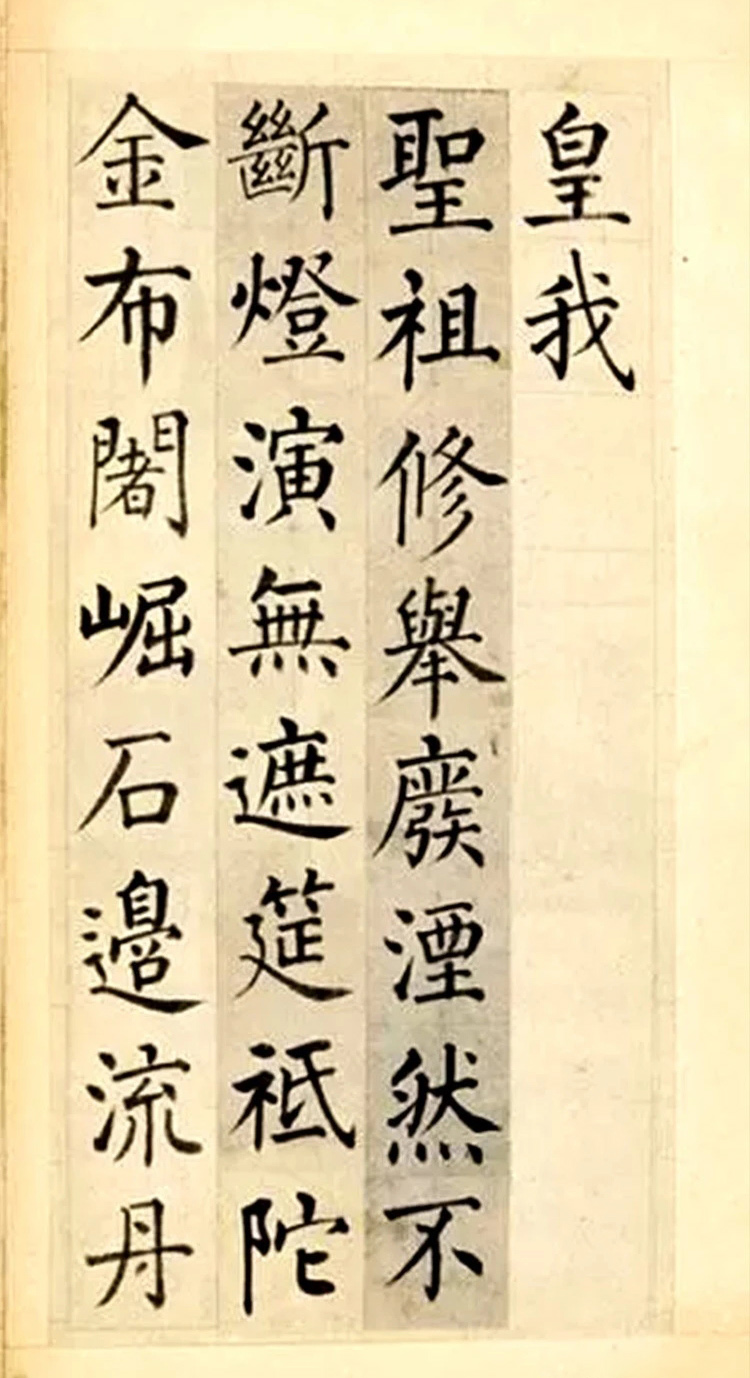 皇我
聖祖修舉廢湮然不
斷燈演無遮筵祗陀
金布闍崛石邉流丹